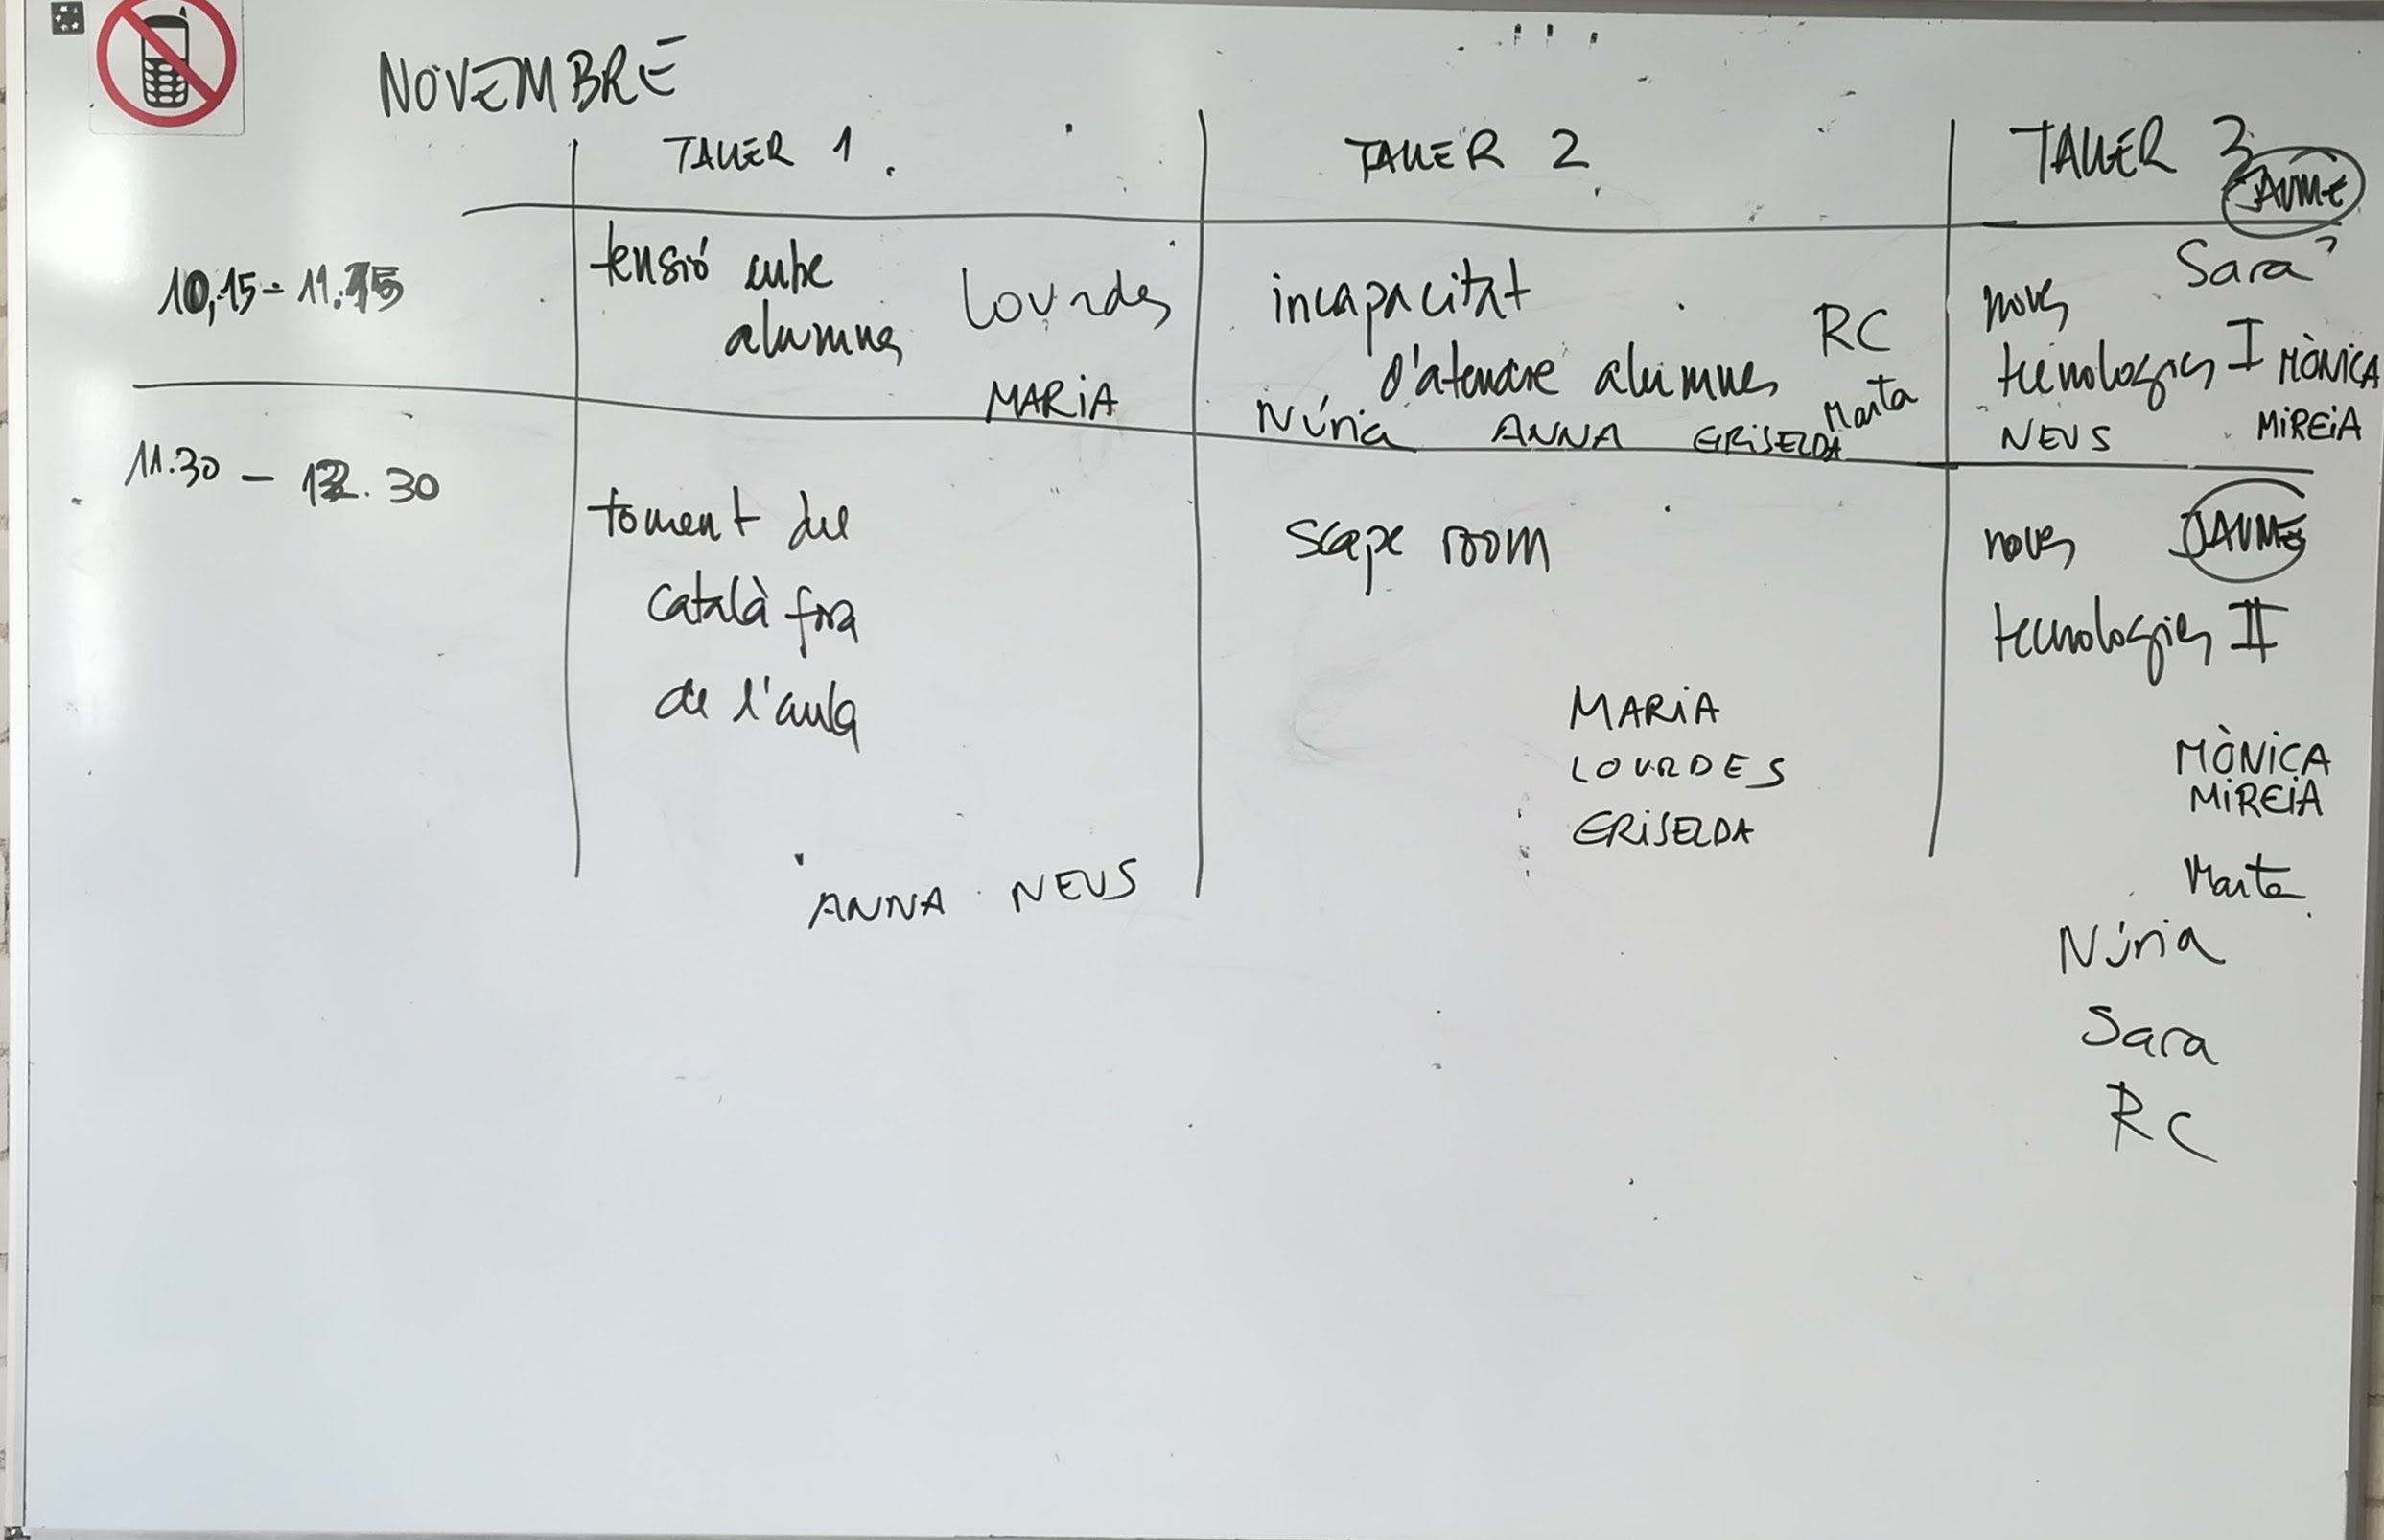 NOVEMBRE
TALLER 1
TALLER 2
TALLER 3
JAUME
10,15 - 11.15
tensió entre
alumnes
Lourdes
MARIA
incapacitat
d'atendre alumnes
RC
Marta
Núria ANNA GRISELDA
Sara
noves
tecnologies I
MÒNICA
NEUS MIREIA
11.30 - 12.30
foment del
català fora
de l'aula
ANNA NEUS
scape room
MARIA
LOURDES
GRISELDA
noves JAUME
tecnologies II
MÒNICA
MIREIA
Marta
Núria
Sara
RC